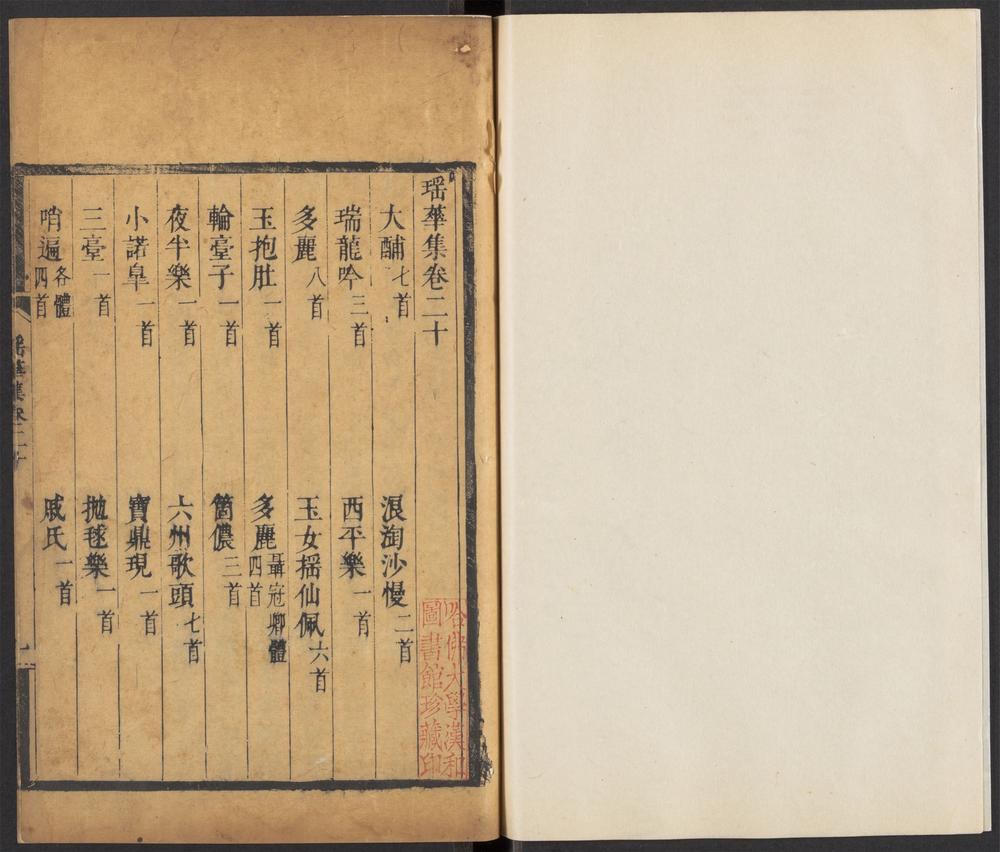 瑶華集卷二十
大酺七首
浪淘沙慢二首
瑞龍吟三首
西平樂一首
多麗八首
玉女摇仙佩六首
玉抱肚一首
多麗聶冠卿體四首
輪臺子一首
箇儂三首
夜半樂一首
六州歌頭七首
小諾臯一首
寶鼎現一首
三臺一首
抛毬樂一首
哨遍各體四首
戚氏一首
瑶華集卷二十
一
哈佛大學漢和
圖書館珍藏印